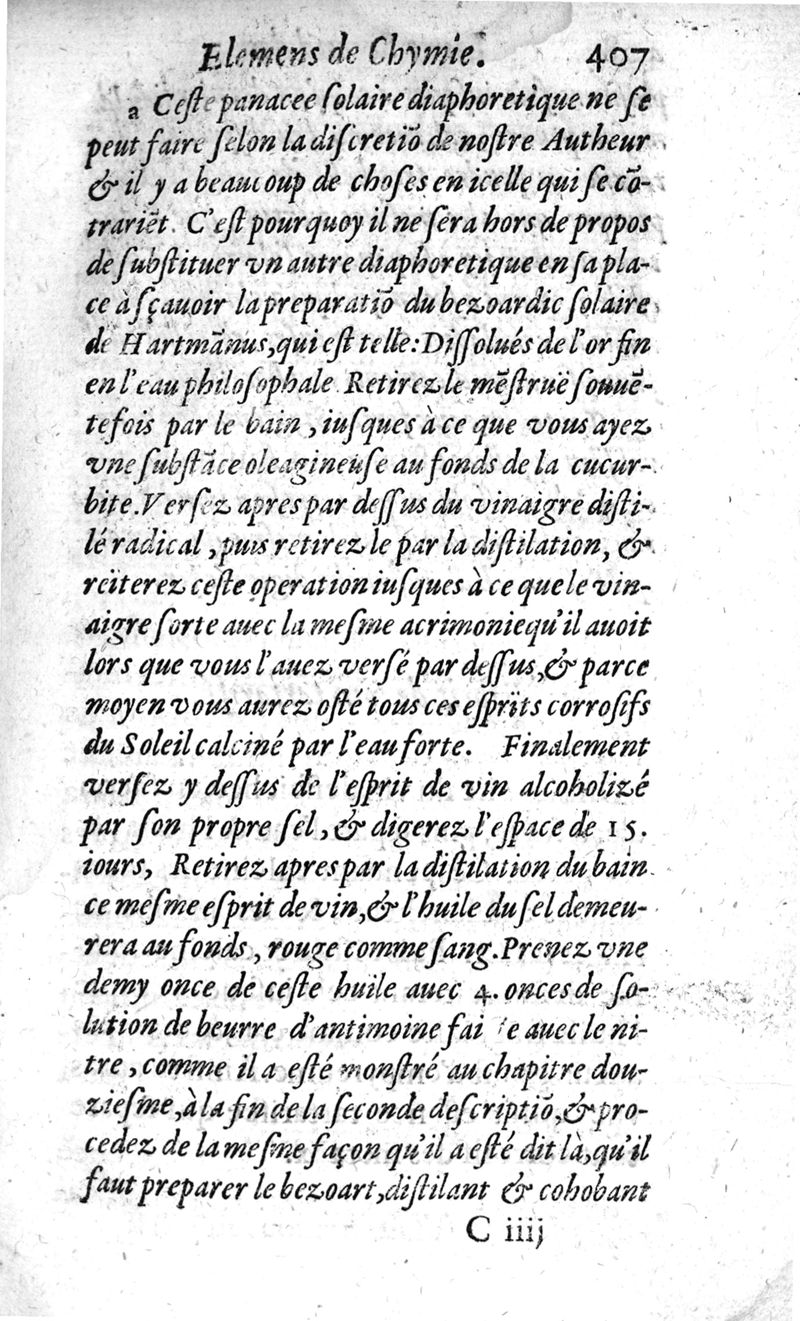 Elemens de Chymie. 407
a Ceſte panacee ſolaire diaphoretique ne ſe
peut faire ſelon la diſcretiō de noſtre Autheur
& il y a beaucoup de choſes en icelle qui ſe cō-
trariēt. C'eſt pourquoy il ne ſera hors de propos
de ſubſtituer vn autre diaphoretique en ſa pla-
ce à ſçauoir la preparatiō du bezoardic ſolaire
de Hartmānus, qui eſt telle: Diſſolués de l'or fin
en l'eau philoſophale. Retirez le mēſtruë ſouuē-
tefois par le bain, iuſques à ce que vous ayez
vne ſubſtāce oleagineuſe au fonds de la cucur-
bite. Verſez apres par deſſus du vinaigre diſti-
lé radical, puis retirez le par la diſtilation, &
reiterez ceſte operation iuſques à ce que le vin-
aigre ſorte auec la meſme acrimonie qu'il auoit
lors que vous l'auez verſé par deſſus, & par ce
moyen vous aurez oſté tous ces eſprits corroſifs
du Soleil calciné par l'eau forte. Finalement
verſez y deſſus de l'eſprit de vin alcoholizé
par ſon propre ſel, & digerez l'eſpace de 15.
iours, Retirez apres par la diſtilation du bain
ce meſme eſprit de vin, & l'huile du ſel demeu-
rera au fonds, rouge comme ſang. Prenez vne
demy once de ceſte huile auec 4. onces de ſo-
lution de beurre d'antimoine fai e auec le ni-
tre, comme il a eſté monſtré au chapitre dou-
zieſme, à la fin de la ſeconde deſcriptiō, & pro-
cedez de la meſme façon qu'il a eſté dit là, qu'il
faut preparer le bezoart, diſtilant & cohobant
C iiij